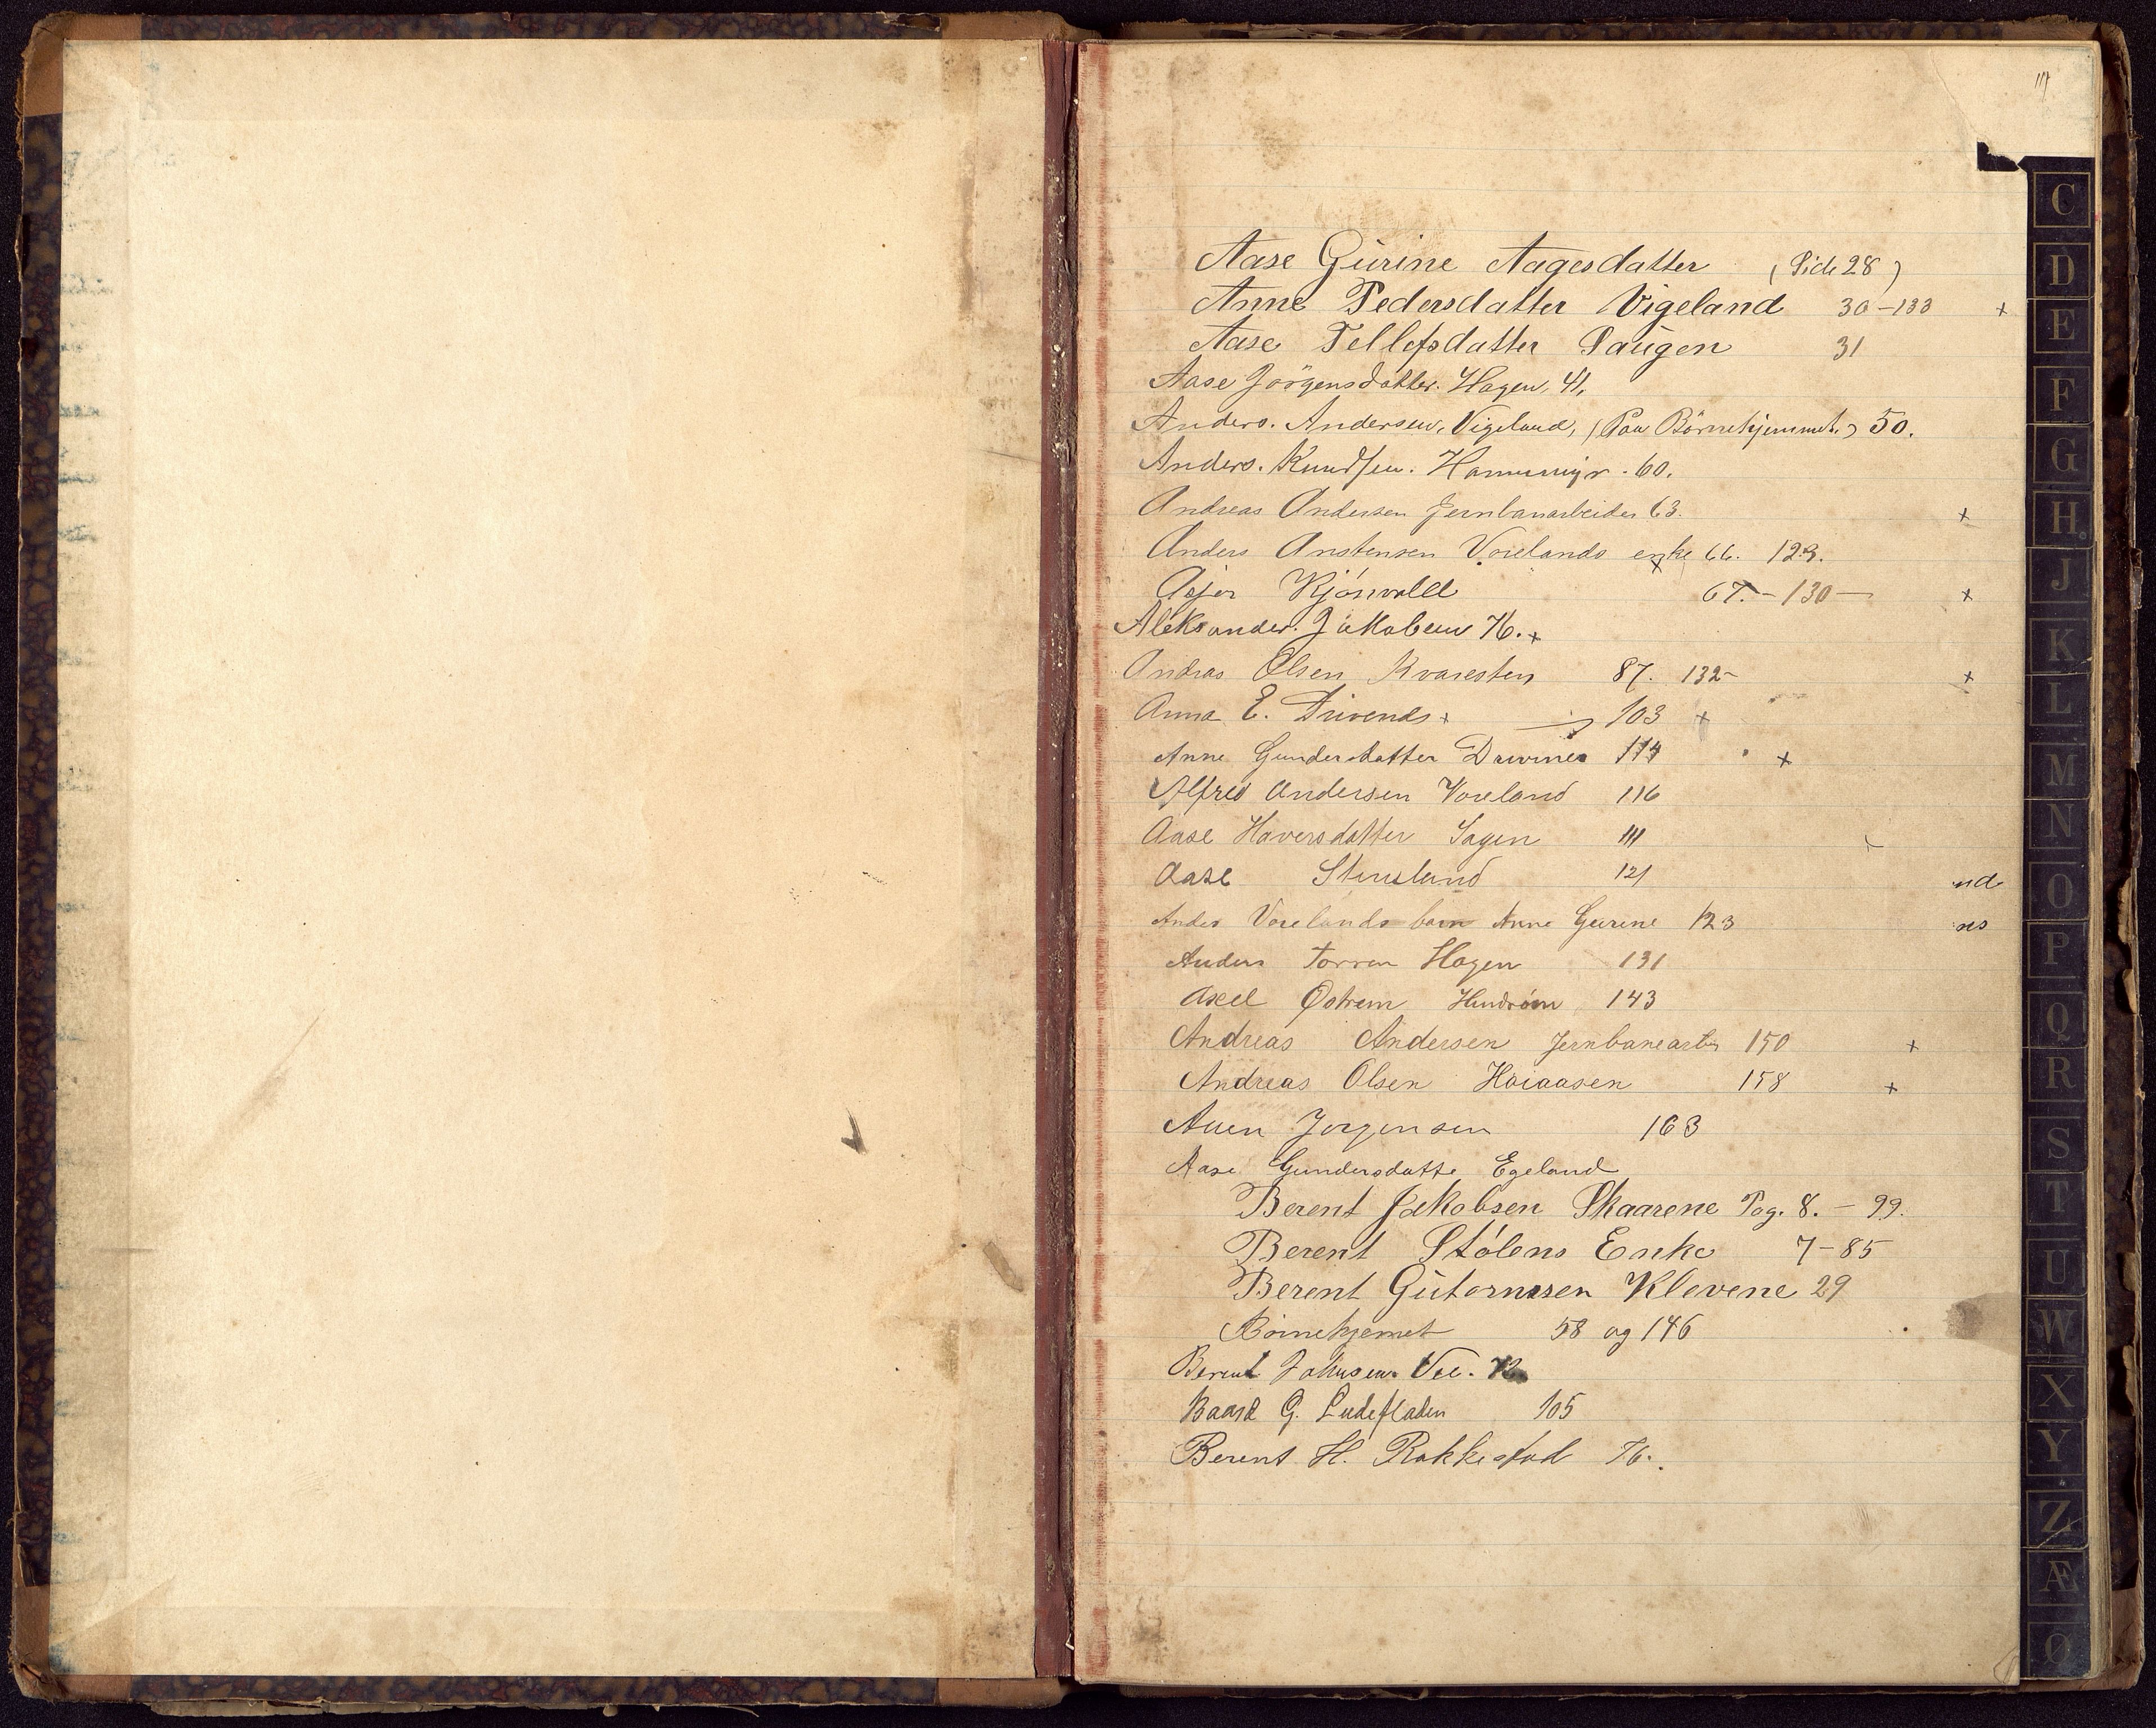 Aase Gurine Aagesdatter (Side 28)
Anne Pedersdatter Vigeland 30-133 +
Aase Tellefsdatter Haugen 31
Aase Jörgensdatter. Hagen, 41,
Anders. Andersen, Vigeland, (Paa Börnehjemmet.) 50.
Anders. Knudsen. Hammyr. 60.
Andreas Andersen Jernbanarbeider 63. +
Anders Anstensen Vorelands enke 66. 123.
67. - 130 - +
Aleksander. Jakobsen 76. +
Andras Olsen Kvaresten 87. 132- +
Anna E. Drivends + 103 +
Anne Gundersdatter 114 +
Alfred Andersen Voreland 116
Aase Haversdatter Hagen 111
Aase Stensland 121 nd
Anders Vorelands barn Anne Gurine 123 ns
Anders Torren Hagen 131
Axel Ostrem 143
Andreas Andersen Jernbanearb 150 +
Andreas Olsen Haiaasen 158 +
Auen Jorgensen 163
Aase Gundersdatte Egeland
Berent Jakobsen Skaarene Pag. 8. - 99.
Berent Stölens Enke 7-85
Berent Gutormsen Klevene 29
Börnehjemet 58 og 146
Berent Johnsen. Vee.
Baard G. Ludefladen 105
Berent H. Rakkestad 76.
C
D
E
F
G
H
J
K
L
M
N
O
P
Q
R
S
T
U
W
X
Y
Z
Æ
Ø